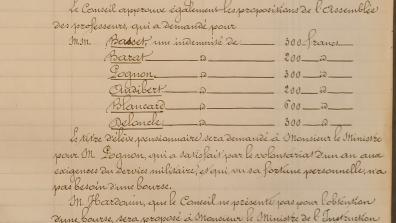 Le Conseil approuve également les propositions de l'Assemblée
des professeurs, qui a demandé pour
MM. Basset, une indemnité de 300 francs
Barat _ᴅ_ 200 _ᴅ_
Pognon _ᴅ_ 300 _ᴅ_
Audibert _ᴅ_ 200 _ᴅ_
Blancard _ᴅ_ 600 _ᴅ_
Deloncle _ᴅ_ 300 _ᴅ_
Le titre d'élève pensionnaire sera demandé à Monsieur le Ministre
pour M. Pognon, qui a satisfait par le volontariat d'un an aux
exigences du service militaire, et qui vu sa fortune personnelle, n'a
pas besoin d'une bourse.
M. Hardouin, que le Conseil ne présente pas pour l'obtention
d'une bourse, sera proposé à Monsieur le Ministre de l'Instruction